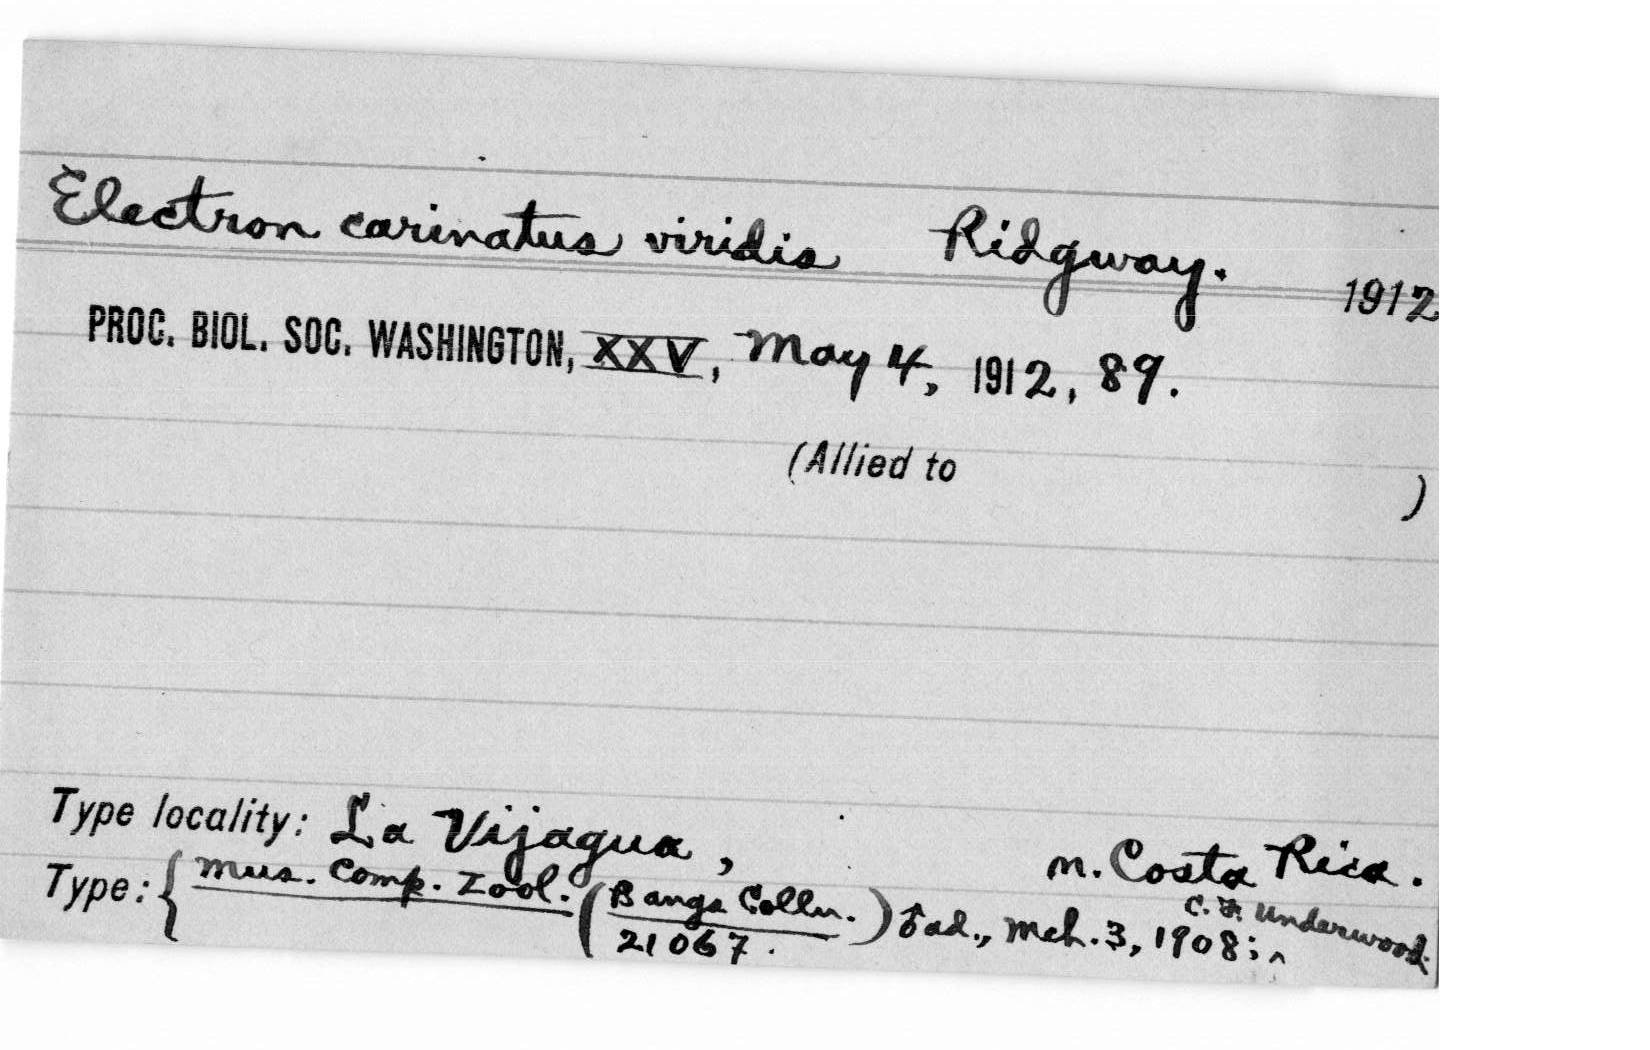 Electron carinatus viridis Ridgway. 1912
PROC. BIOL. SOC. WASHINGTON, XXV, May 4, 1912, 89.
(Allied to )
Type locality: La Vijagua, n. Costa Rica.
Type: { Mus. Comp. Zool. (Bangs Colln. 21067.) ♂ ad., Mch. 3, 1908; ^ C. F. Underwood.